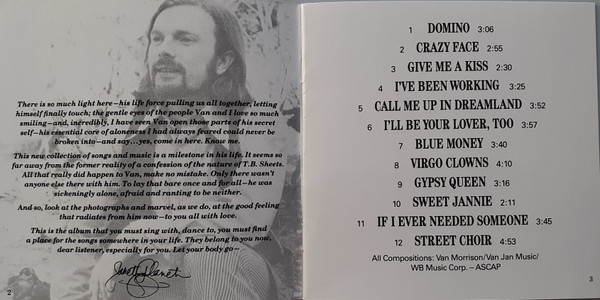 There is so much light here—his life force pulling us all together, letting
himself finally touch; the gentle eyes of the people Van and I love so much
smiling—and, incredibly, I have seen Van open those parts of his secret
self—his essential core of aloneness I had always feared could never be
broken into—and say...yes, come in here. Know me.
This new collection of songs and music is a milestone in his life. It seems so
far away from the former reality of a confession of the nature of T.B. Sheets.
All that really did happen to Van, make no mistake. Only there wasn't
anyone else there with him. To lay that bare once and for all—he was
sickeningly alone, afraid and ranting to be neither.
And so, look at the photographs and marvel, as we do, at the good feeling
that radiates from him now—to you all with love.
This is the album that you must sing with, dance to, you must find
a place for the songs somewhere in your life. They belong to you now,
dear listener, especially for you. Let your body go—
Janet Planet
2
1 DOMINO 3:06
2 CRAZY FACE 2:55
3 GIVE ME A KISS 2:30
4 I'VE BEEN WORKING 3:25
5 CALL ME UP IN DREAMLAND 3:52
6 I'LL BE YOUR LOVER, TOO 3:57
7 BLUE MONEY 3:40
8 VIRGO CLOWNS 4:10
9 GYPSY QUEEN 3:16
10 SWEET JANNIE 2:11
11 IF I EVER NEEDED SOMEONE 3:45
12 STREET CHOIR 4:53
All Compositions: Van Morrison/Van Jan Music/
WB Music Corp. – ASCAP
3